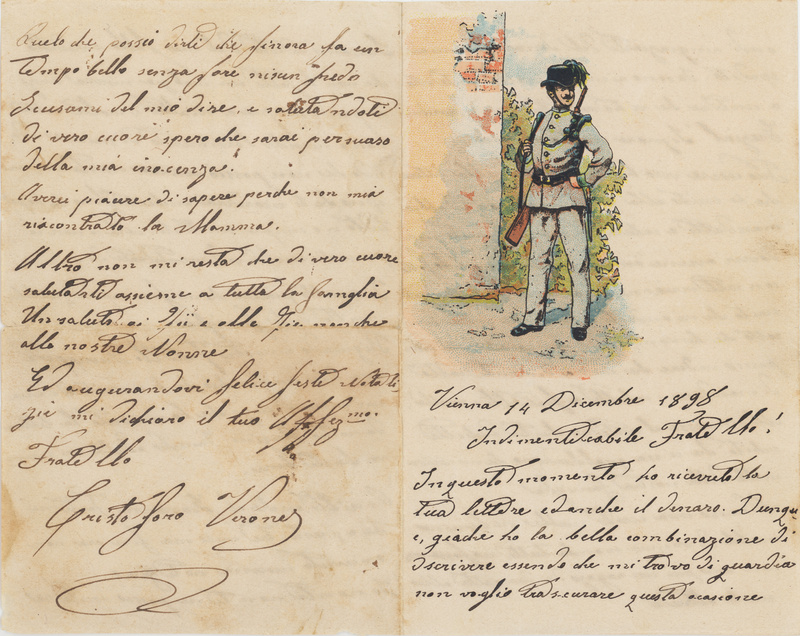 Vienna 14 Dicembre 1898
Indimenticabile Fratello!
In questo momento ho ricevuto la
tua lettere ed anche il denaro. Dunqu-
e, giache ho la bella combinazione di
dscrivere essendo che mi trovo di guardia
non voglio trascurare questa ocasione
Quelo che possio dirti che finora fa un
tempo bello senza fare nisun fredo
Scusami del mio dire, e salutandoti
di vero cuore spero che sarai persuaso
della mia inocenza.
Averei piacere di sapere perche non mia
riscontratto la Mamma.
Altro non mi resta che di vero cuore
salutarti assieme a tutta la famiglia
Un saluto ai Zii e alle Zie nonche
alle nostre Nonne
Ed augurandovi felice feste Natali-
zie mi dichiaro il tuo Affezmo.
Fratello
Cristoforo Verones